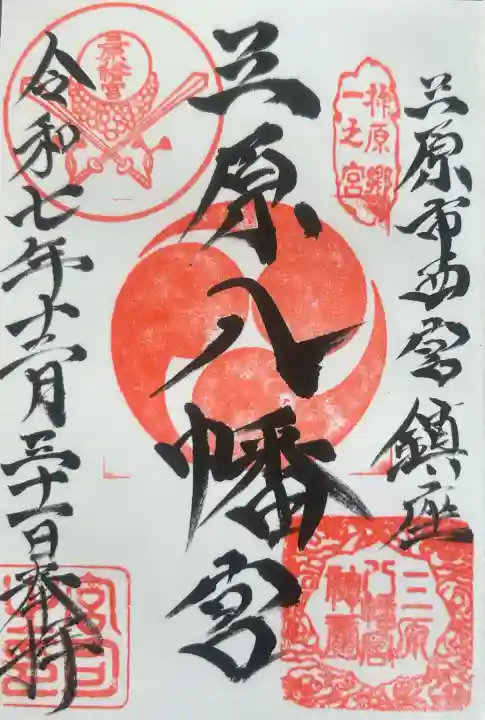 三原市西宮鎮座
柞原郷
一之宮
三原八幡宮
三原
八幡宮
神璽
三原八幡宮
令和七年十二月三十一日奉拝